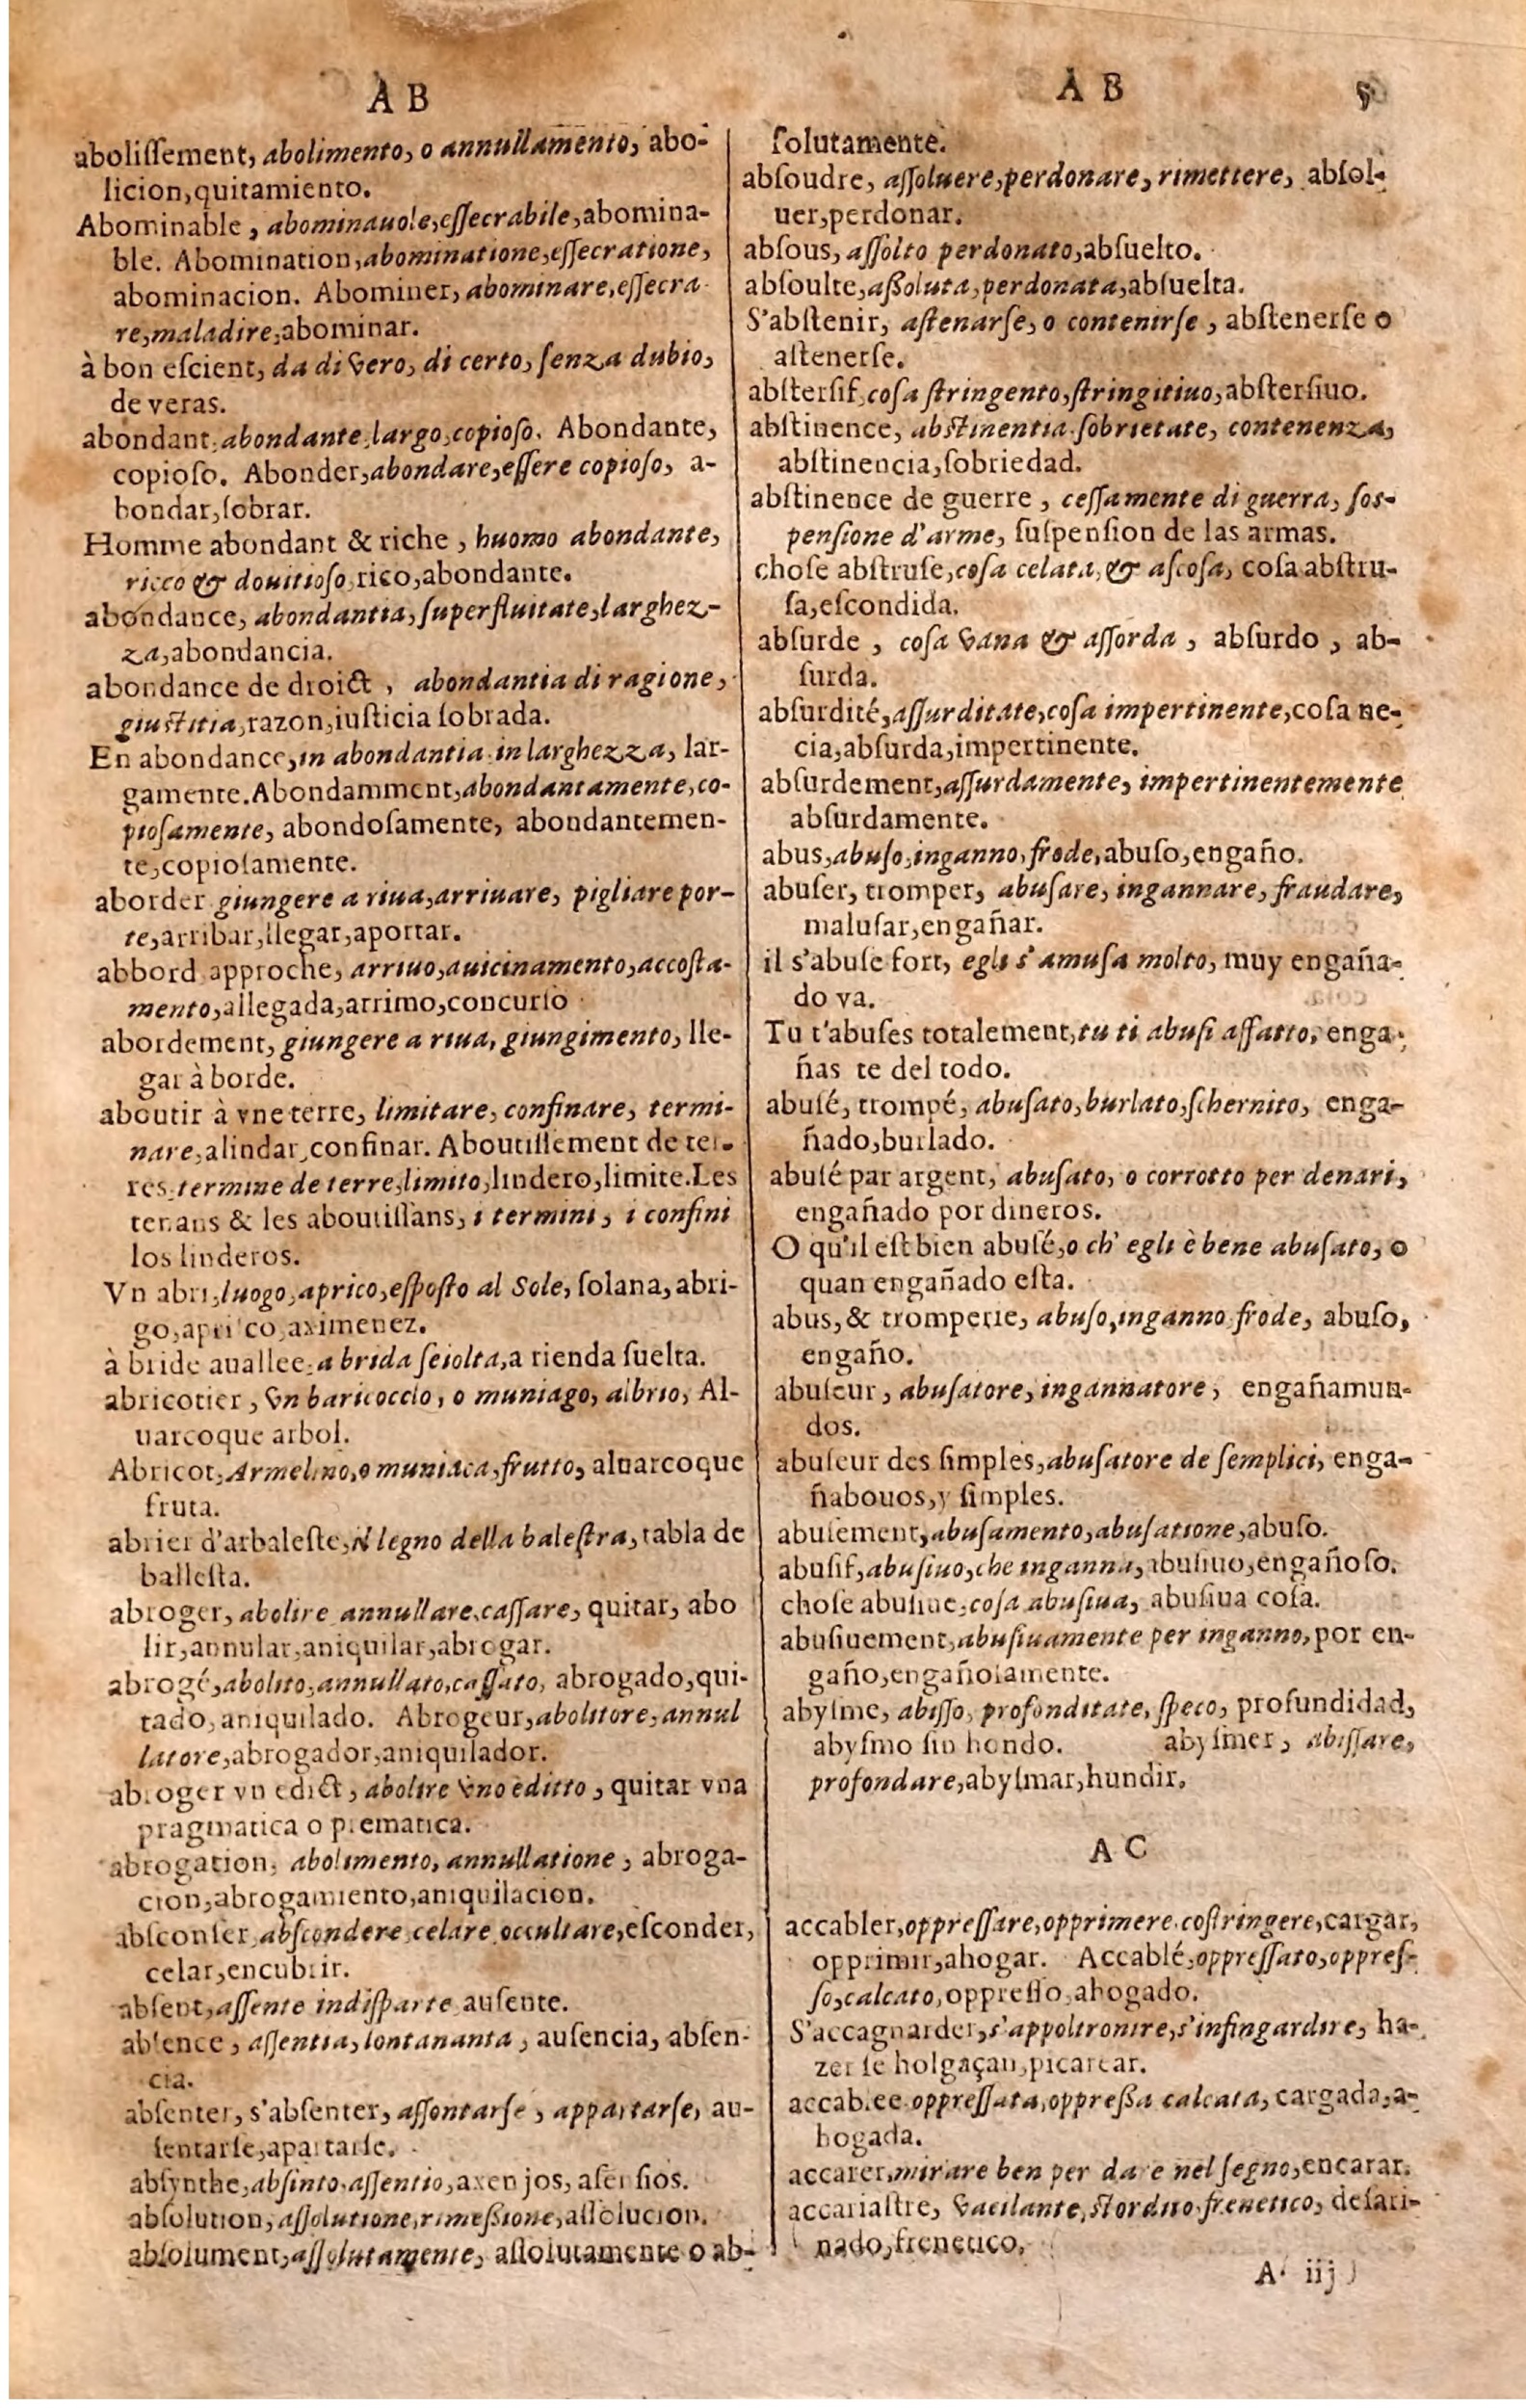 A B
aboliſſement, abolimento, o annullamento, abo-
licion, quitamiento.
Abominable, abominauole, eſſecrabile, abomina-
ble. Abomination, abominatione, eſſecratione,
abominacion. Abominer, abominare, eſſecra
re, maladire, abominar.
à bon eſcient, da di vero, di certo, ſenza dubio,
de veras.
abondant, abondante, largo, copioſo. Abondante,
copioſo. Abonder, abondare, eſſere copioſo, a-
bondar, ſobrar.
Homme abondant & riche, huomo abondante,
ricco & douitioſo, rico, abondante.
abondance, abondantia, ſuperfluitate, larghez-
za, abondancia.
abondance de droict, abondantia di ragione,
giuſtitia, razon, iuſticia ſobrada.
En abondance, in abondantia, in larghezza, lar-
gamente. Abondamment, abondantamente, co-
pioſamente, abondoſamente, abondantemen-
te, copioſamente.
aborder, giungere a riua, arriuare, pigliare por-
te, arribar, llegar, aportar.
abbord approche, arriuo, auicinamento, accoſta-
mento, allegada, arrimo, concurſo
abordement, giungere a riua, giungimento, lle-
gar à borde.
aboutir à vne terre, limitare, confinare, termi-
nare, alindar, confinar. Aboutiſſement de ter-
res, termine de terre, limito, lindero, limite. Les
tenans & les aboutiſſans, i termini, i confini
los linderos.
Vn abri, luogo, aprico, eſpoſto al Sole, ſolana, abri-
go, aprico, aximenez.
à bride auallee, a brida ſciolta, a rienda ſuelta.
abricotier, vn baricoccio, o muniago, albrio, Al-
uarcoque arbol.
Abricot, Armelino, o muniaca, frutto, aluarcoque
fruta.
abrier d'arbaleſte, il legno della baleſtra, tabla de
balleſta.
abroger, abolire annullare, caſſare, quitar, abo
lir, annular, aniquilar, abrogar.
abrogé, abolito, annullato, caſſato, abrogado, qui-
tado, aniquilado. Abrogeur, abolitore, annul
latore, abrogador, aniquilador.
abroger vn edict, abolire vno editto, quitar vna
pragmatica o prematica.
abrogation, abolimento, annullatione, abroga-
cion, abrogamiento, aniquilacion.
abſconſer, abſcondere, celare, occultare, eſconder,
celar, encubrir.
abſent, aſſente indiſparte, auſente.
abſence, aſſentia, lontananta, auſencia, abſen-
cia.
abſenter, s'abſenter, aſſontarſe, appartarſe, au-
ſentarſe, apartarſe.
abſynthe, abſinto, aſſentio, axenjos, aſenſios.
abſolution, aſſolutione, rimeßione, aſſolucion.
abſolument, aſſolutamente, aſſolutamente o ab-
A B 5
ſolutamente.
abſoudre, aſſoluere, perdonare, rimettere, abſol-
uer, perdonar.
abſous, aſſolto perdonato, abſuelto.
abſoulte, aßoluta, perdonata, abſuelta.
S'abſtenir, aſtenarſe, o contenirſe, abſtenerſe o
aſtenerſe.
abſterſif, coſa ſtringento, ſtringitiuo, abſterſiuo.
abſtinence, abſtinentia ſobrietate, contenenza,
abſtinencia, ſobriedad.
abſtinence de guerre, ceſſamente di guerra, ſoſ-
penſione d'arme, ſuſpenſion de las armas.
choſe abſtruſe, coſa celata, & aſcoſa, coſa abſtru-
ſa, eſcondida.
abſurde, coſa vana & aſſorda, abſurdo, ab-
ſurda.
abſurdité, aſſurditate, coſa impertinente, coſa ne-
cia, abſurda, impertinente.
abſurdement, aſſurdamente, impertinentemente
abſurdamente.
abus, abuſo, inganno, frode, abuſo, engaño.
abuſer, tromper, abuſare, ingannare, fraudare,
maluſar, engañar.
il s'abuſe fort, egli s'amuſa molto, muy engaña-
do va.
Tu t'abuſes totalement, tu ti abuſi affatto, enga-
ñas te del todo.
abuſé, trompé, abuſato, burlato, ſchernito, enga-
ñado, burlado.
abuſé par argent, abuſato, o corrotto per denari,
engañado por dineros.
O qu'il eſt bien abuſé, o ch' egli è bene abuſato, o
quan engañado eſta.
abus, & tromperie, abuſo, inganno frode, abuſo,
engaño.
abuſeur, abuſatore, ingannatore, engañamun-
dos.
abuſeur des ſimples, abuſatore de ſemplici, enga-
ñabouos, y ſimples.
abuſement, abuſamento, abuſatione, abuſo.
abuſif, abuſiuo, che inganna, abuſiuo, engañoſo.
choſe abuſiue, coſa abuſiua, abuſiua coſa.
abuſiuement, abuſiuamente per inganno, por en-
gaño, engañoſamente.
abyſme, abiſſo, profonditate, ſpeco, profundidad,
abyſmo ſin hondo. abyſmer, abiſſare,
profondare, abyſmar, hundir.
A C
accabler, oppreſſare, opprimere, coſtringere, cargar,
opprimir, ahogar. Accablé, oppreſſato, oppreſ-
ſo, calcato, oppreſſo, ahogado.
S'accagnarder, s'appoltronire, s'infingardire, ha-
zer ſe holgaçan, picarear.
accablee oppreſſata, oppreßa calcata, cargada, a-
hogada.
accarer, mirare ben per dare nel ſegno, encarar.
accariaſtre, vacilante, ſtordito frenetico, deſati-
nado, frenetico.
A iij